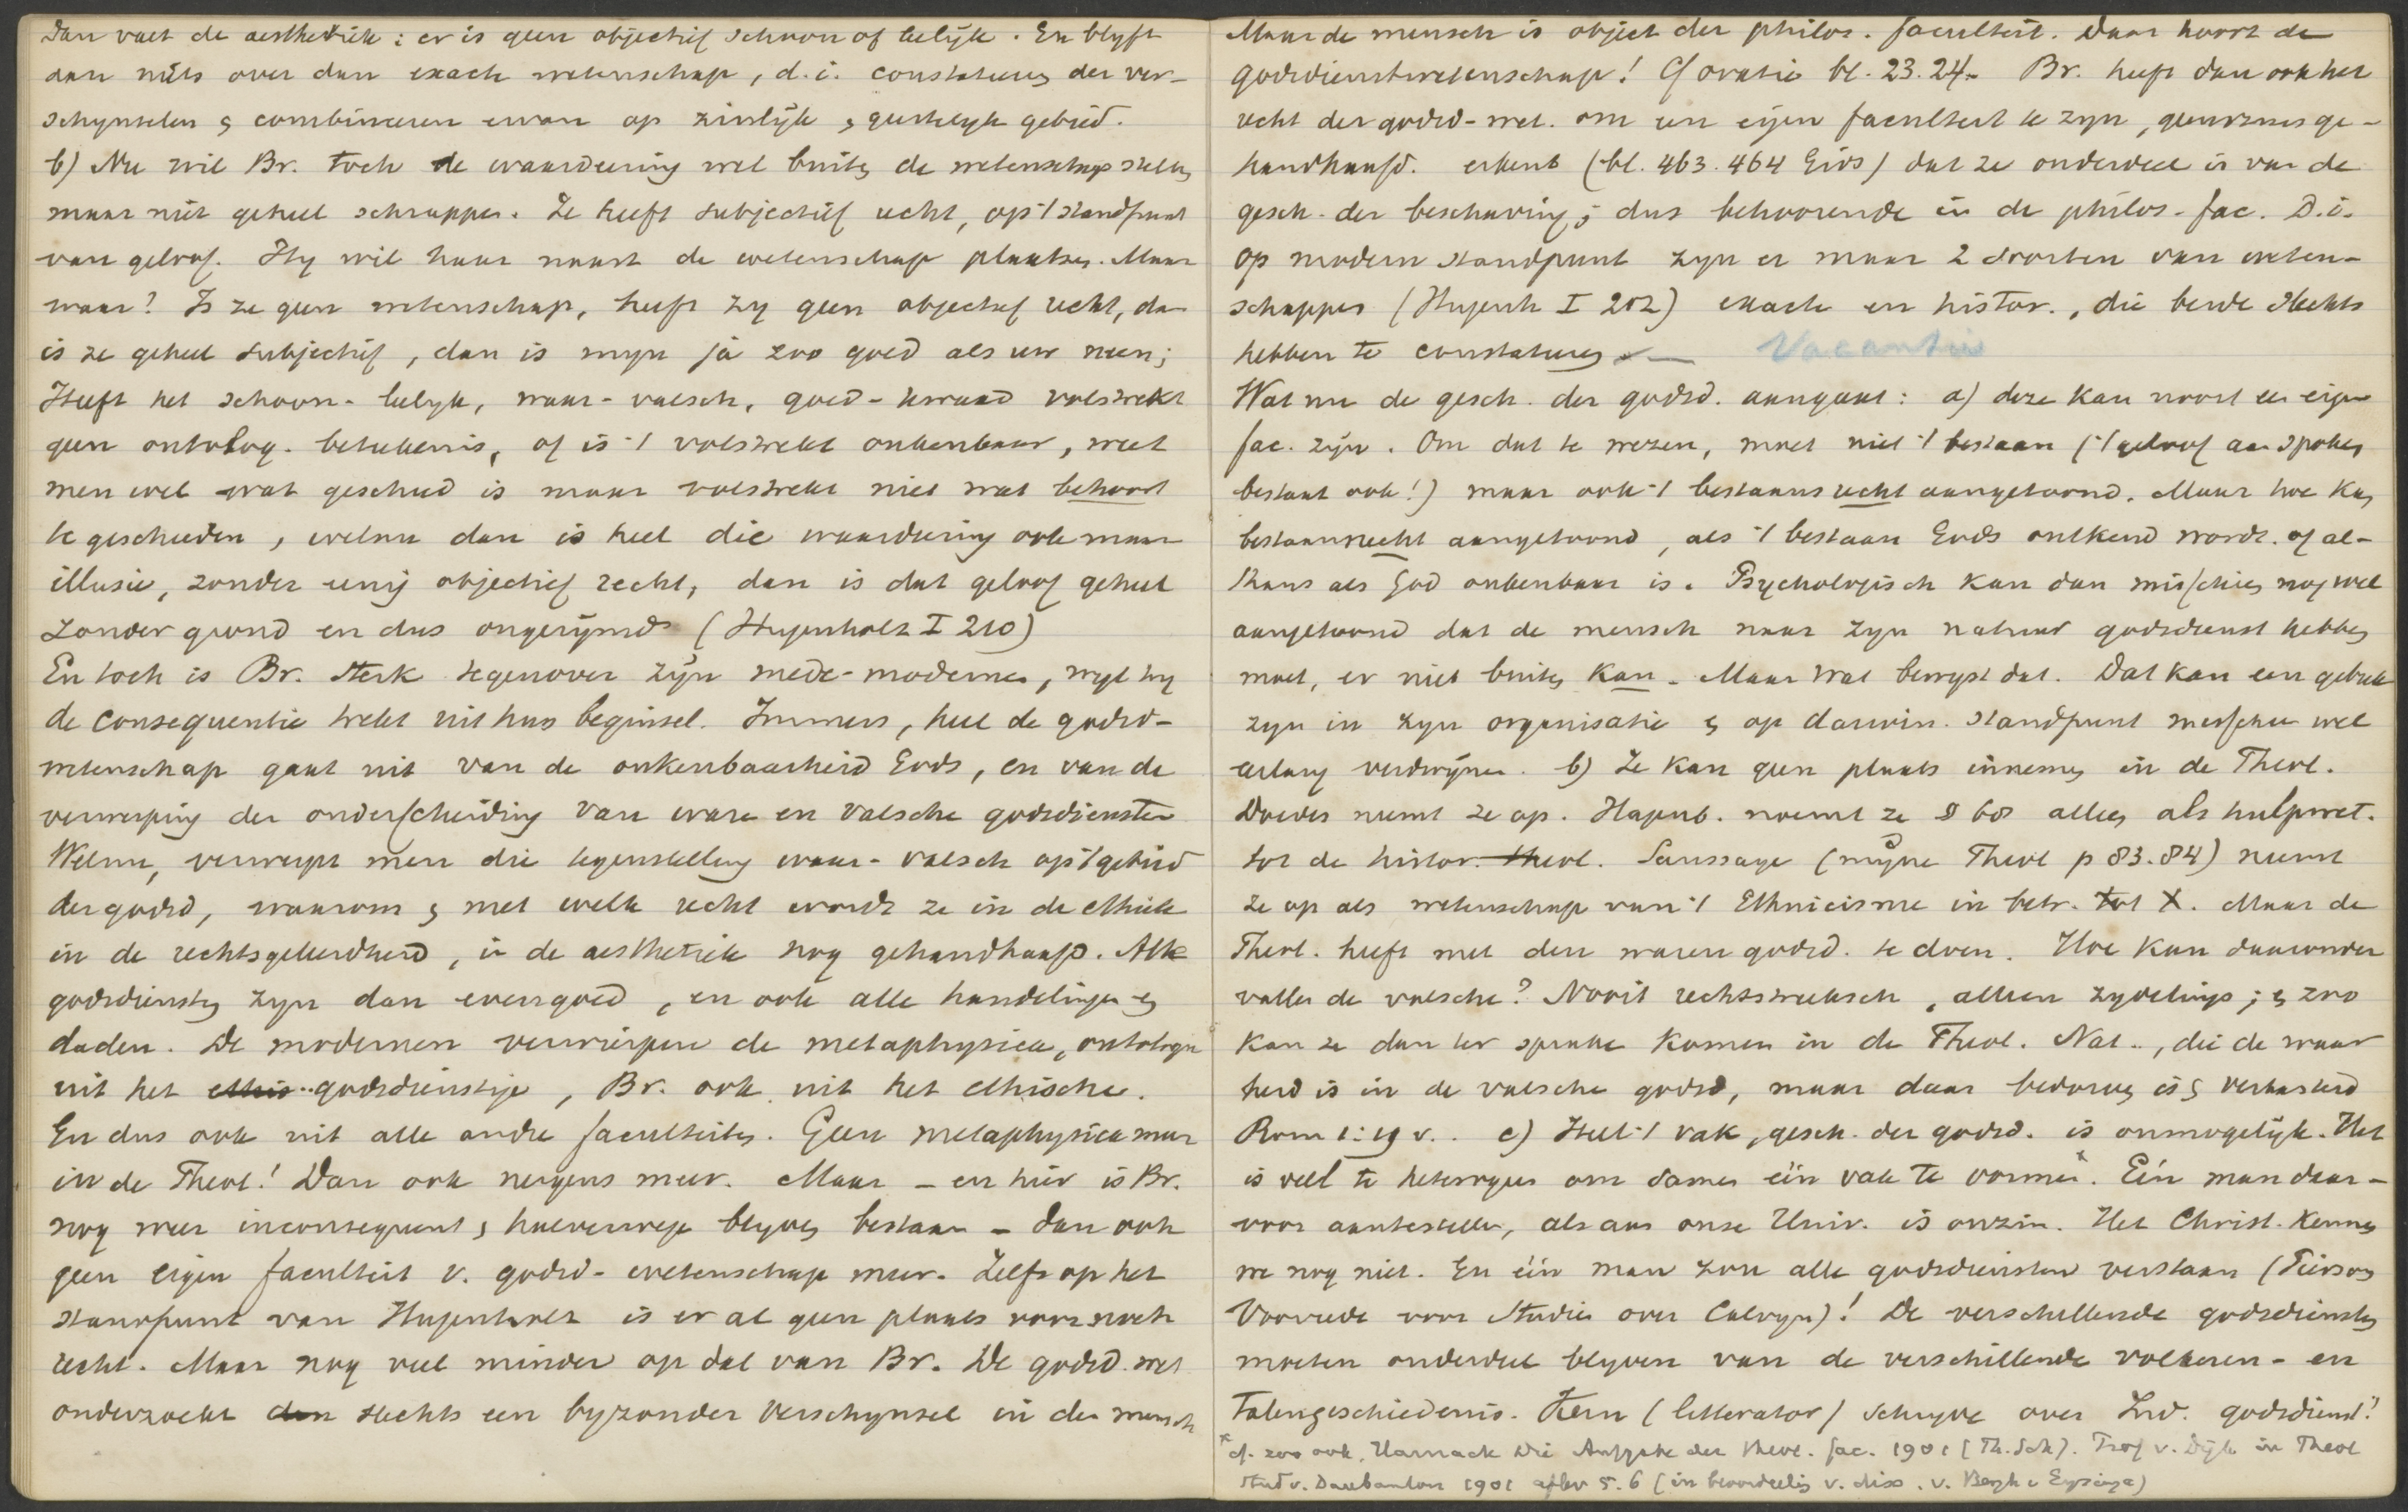 Dan valt de aesthetiek: er is geen objectief schoon of leelijk. En blyft
dan niets over dan exacte wetenschap, d.i. constateeren der ver-
schynselen & combineeren ervan op zinlyk & geestelyk gebied.
b) Nu wil Br. toch de waardeering wel buiten de wetenschap stellen
maar niet geheel schrappen. Ze heeft subjectief recht, op 't standpunt
van geloof. Hy wil haar naast de wetenschap plaatsen. Maar
waar? Is ze geen wetenschap, heeft zy geen objectief recht, dan
is ze geheel subjectief, dan is myn ja zoo goed als uw neen;
Heeft het schoon-leelyk, waar-valsch, goed-kwaad volstrekt
geen ontolog. beteekenis, of is 't volstrekt onkenbaar, weet
men wel wat geschied is maar volstrekt niet wat behoort
te geschieden, welnu dan is heel die waardeering ook maar
illusie, zonder eenig objectief recht, dan is dat geloof geheel
zonder grond en dus ongerijmd (Hugenholtz I 210)
En toch is Br. sterk tegenover zyn mede-modernen, wyl hy
de consequentie trekt uit hun beginsel. Immers, heel de godsd-
wetenschap gaat uit van de onkenbaarheid Gods, en van de
verwerping der onderscheiding van ware en valsche godsdiensten
Welnu, verwerpt men die tegenstelling waar-valsch op 't gebied
der godsd, waarom & met welk recht wordt ze in de ethiek
in de rechtsgeleerdheid, in de aesthetiek nog gehandhaafd. Alle
godsdiensten zyn dan evengoed, en ook alle handelingen en
daden. De modernen verwierpen de metaphysica, ontologie
uit het ethis.. godsdienstige, Br. ook uit het ethische.
En dus ook uit alle andre faculteiten. Geen metaphysica meer
in de Theol.! Dan ook nergens meer. Maar – en hier is Br.
nog weer inconsequent & halverwege blyven bestaan – dan ook
geen eigen faculteit v. godsd-wetenschap meer. Zelfs op het
standpunt van Hugenholtz is er al geen plaats voor noch
recht. Maar nog veel minder op dat van Br. De godsd.wet
onderzoekt dan slechts een byzonder verschynsel in den mensch
Maar de mensch is object der philos. faculteit. Daar hoort de
godsdienstwetenschap! Cf oratie bl. 23.24. Br. heeft dan ook het
recht der godsd-wet. om een eigen faculteit te zyn, geenszins ge-
handhaafd. erkent (bl. 463.464 Gids) dat ze onderdeel is van de
gesch. der beschaving; dus behoorende in de philos. fac. D.i.
op modern standpunt zyn er maar 2 soorten van weten-
schappen (Hugenh I 202) exacte en histor., die beide slechts
hebben te constateeren – Vacantie
Wat nu de gesch. der godsd. aangaat: a) deze kan nooit een eigen
fac. zijn. Om dat te wezen, moet niet 't bestaan ('t geloof aan spoken
bestaat ook!) maar ook 't bestaansrecht aangetoond. Maar hoe kan
bestaansrecht aangetoond, als 't bestaan Gods ontkend wordt. of al-
thans als God onkenbaar is. Psychologisch kan dan misschien nog wel
aangetoond dat de mensch naar zyn natuur godsdienst hebben
moet, er niet buiten kan. Maar wat bewyst dat. Dat kan een gebrek
zyn in zyn organisatie & op darwin. standpunt misschien wel
eerlang verdwynen. b) Ze kan geen plaats innemen in de Theol.
Doedes neemt ze op. Hagenb. noemt ze § 68 alleen als hulpwet.
tot de histor. theol. Saussaye (myne Theol p 83.84) neemt
ze op als wetenschap van 't Ethnicisme in betr. tot X. Maar de
Theol. heeft met den waren godsd. te doen. Hoe kan daaronder
vallen de valsche? Nooit rechtstreeksch, alleen zydelings; & zoo
kan ze dan ter sprake komen in de Theol. Nat.., die de waar
heid is in de valsche godsd, maar daar bedorven is & verbasterd
Rom 1:19 v.. c) Heel 't vak, gesch. der godsd. is onmogelijk. Het
is veel te heterogeen om samen één vak te vormen*. Eén man daar-
voor aantestellen, als aan onze Univ. is onzin. Het Christ. kennen
we nog niet. En één man zou alle godsdiensten verstaan (Pierson
Voorrede voor Studien over Calvyn)! De verschillende godsdiensten
moeten onderdeel blyven van de verschillende volkeren- en
talengeschiedenis. Kern (litterator) schryve over Ind. godsdienst!
* cf. zoo ook, Harnack Die Aufgabe der theol. Fac. 1901 (Th. Sch). Prof v. Dijk in Theol
Stud v. Daubanton 1901 aflev 5.6 (in beoordeelig v. diss. v. Bergh v Eysinga)